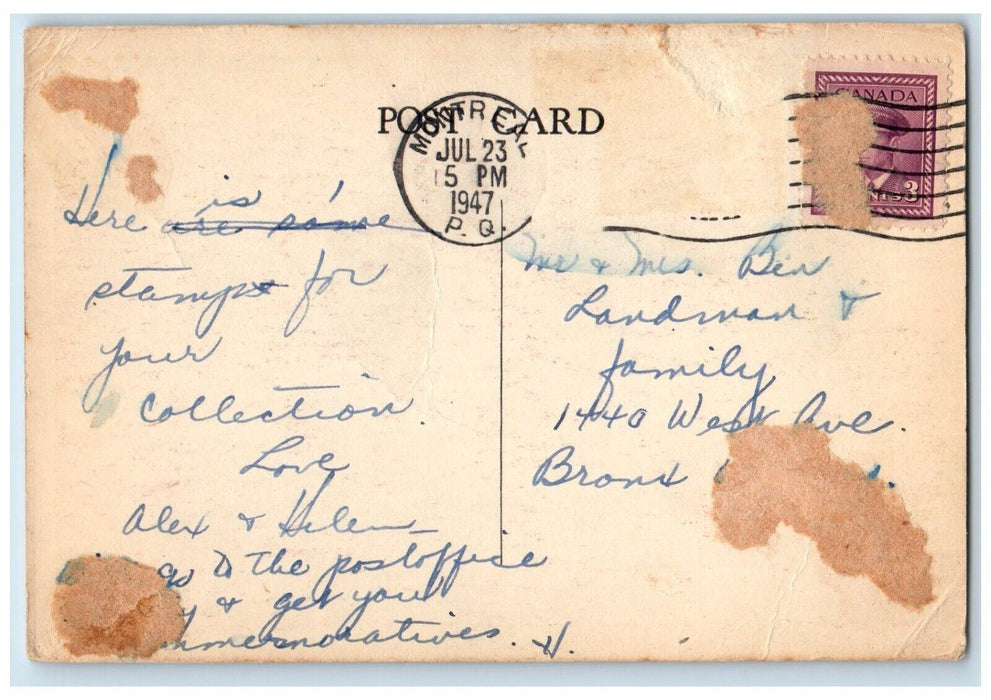 POST CARD
MONTREAL
JUL 23
5 PM
1947
P. Q.
CANADA
3
Here is
are some
stamp for
your
collection.
Love
Alex & Helen
go to the postoffice
y & get your
mmemoratives. H.
Mr & Mrs. Ben
Landman &
family
1440 West Ave.
Bronx